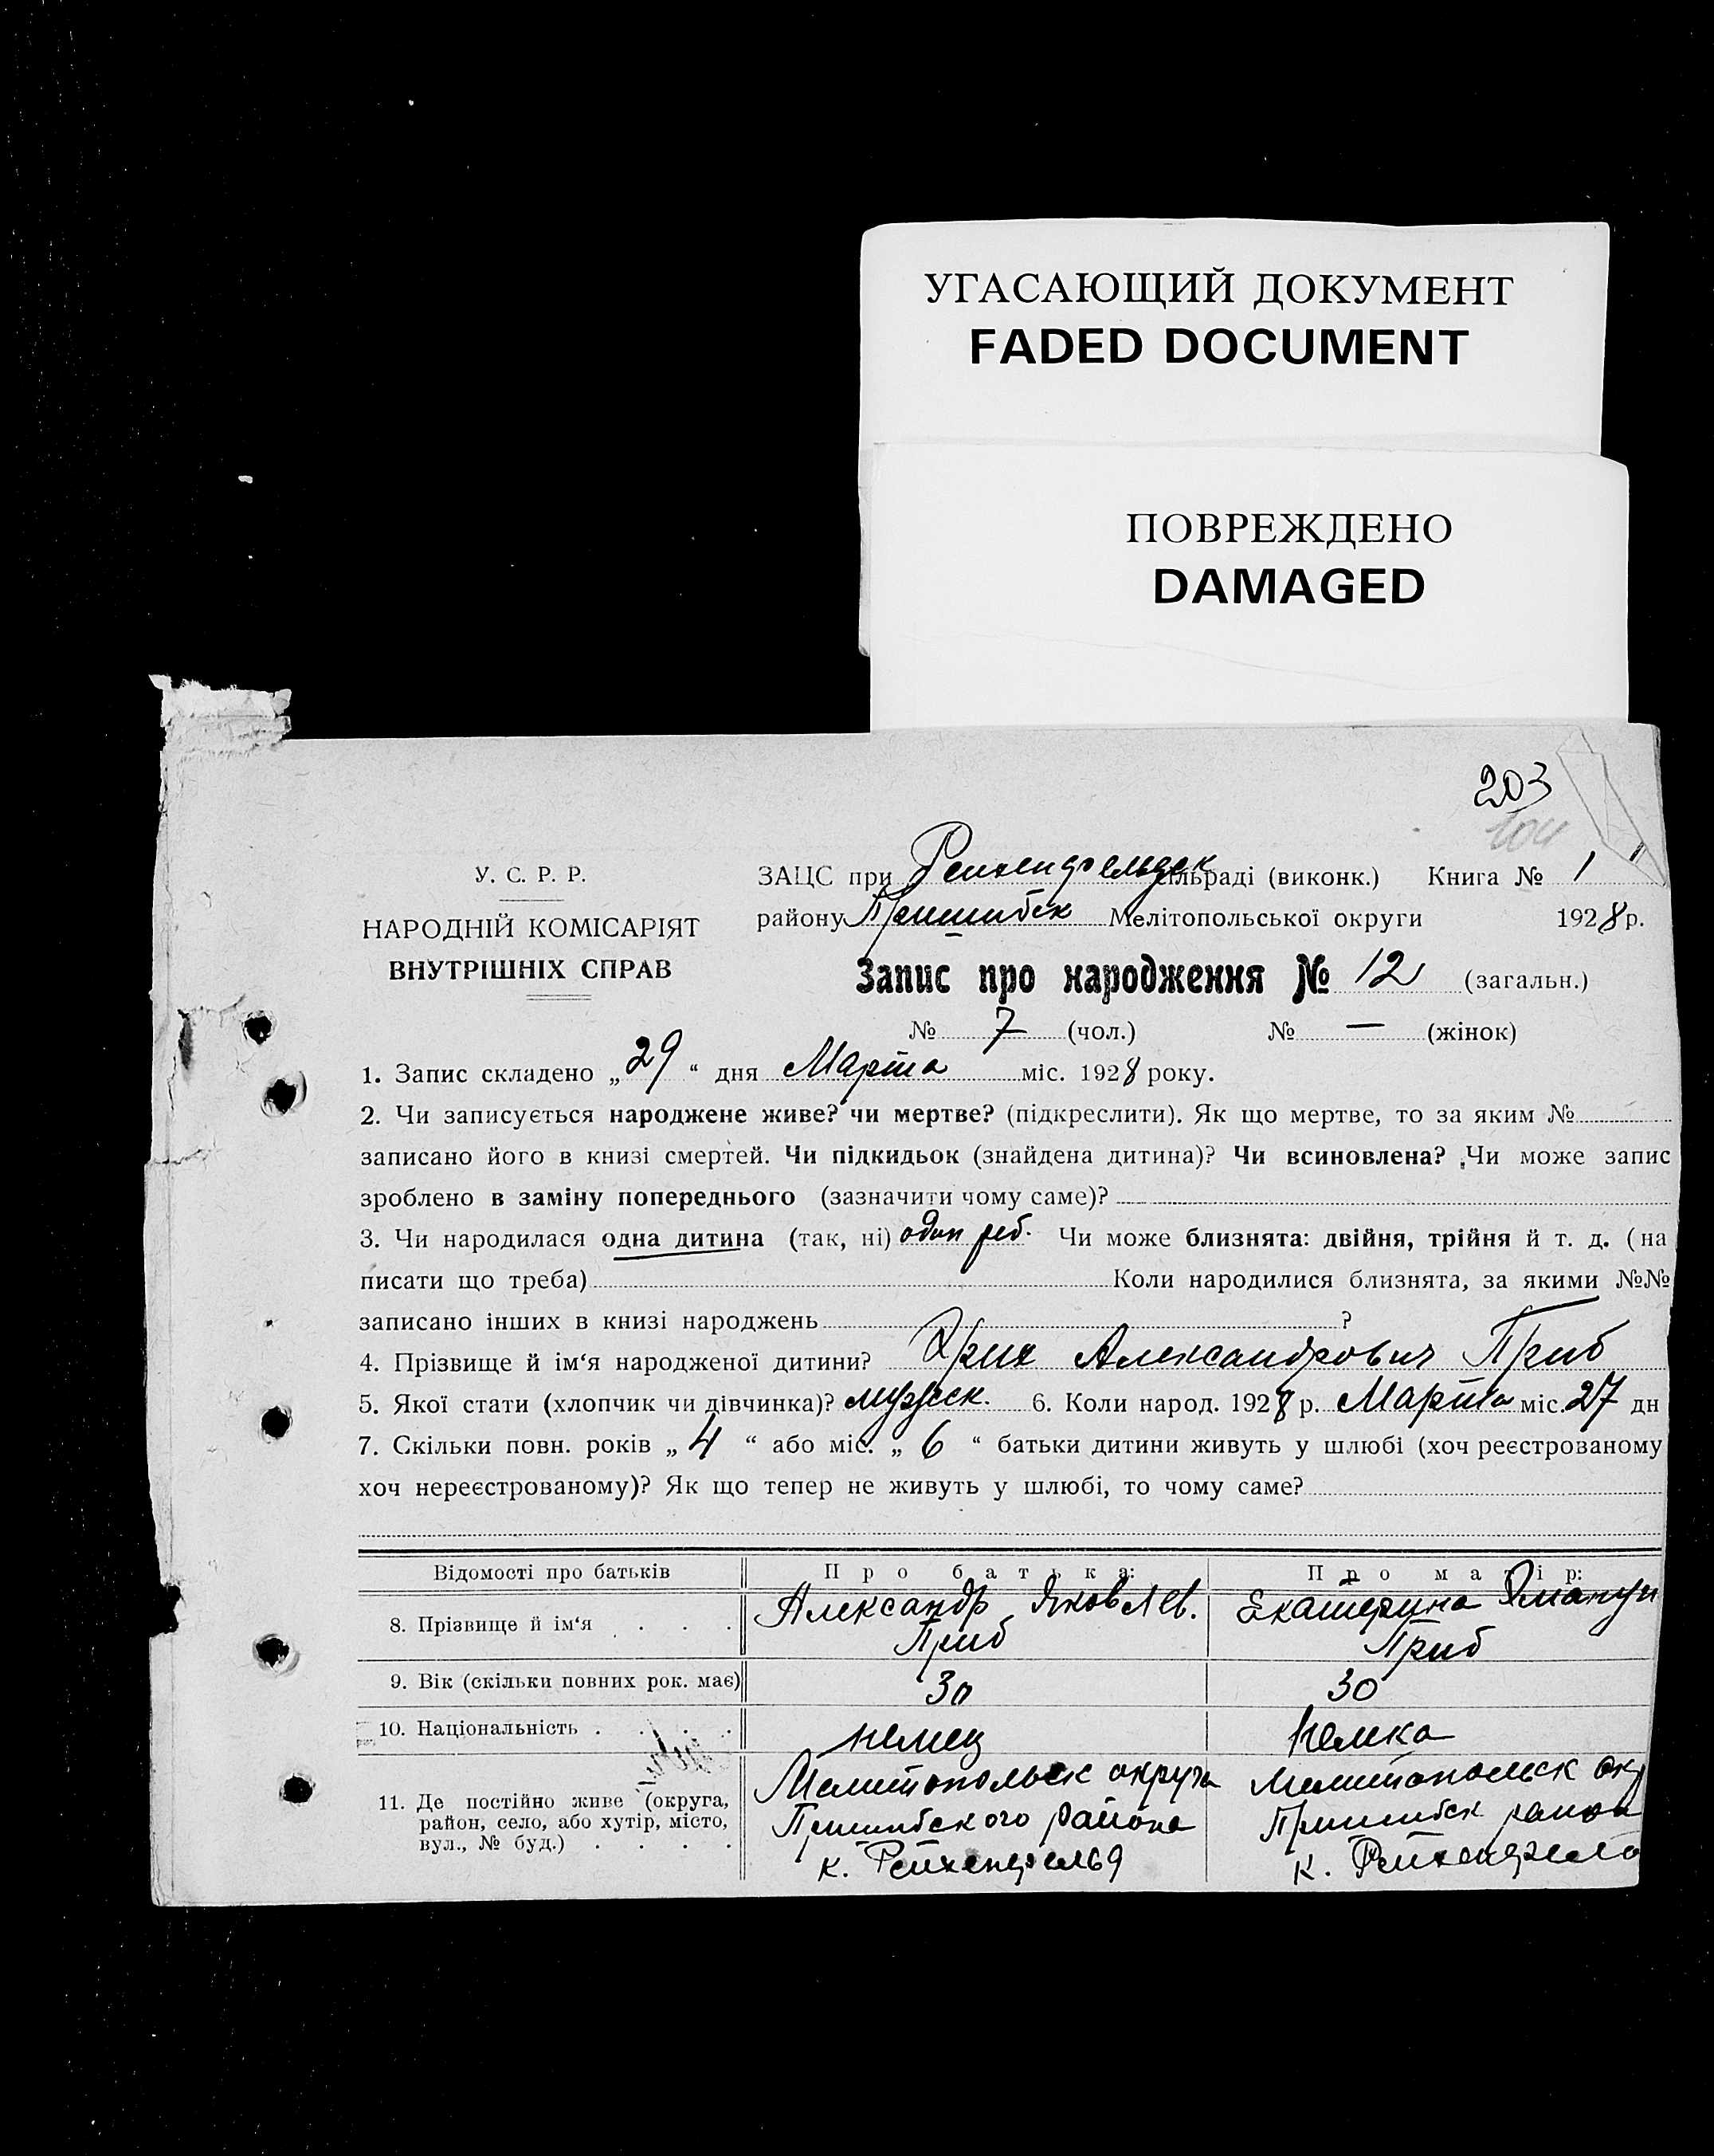 УГАСАЮЩИЙ ДОКУМЕНТ
FADED DOCUMENT
ПОВРЕЖДЕНО
DAMAGED
203
104
У. С. Р. Р.
НАРОДНІЙ КОМІСАРІЯТ
ВНУТРІШНІХ СПРАВ
ЗАЦС при Рейхенфельдск сільраді (виконк.) Книга № 1
району Пришибск Мелітопольської округи 1928 р.
Запис про народження № 12 (загальн.)
№ 7 (чол.) № — (жінок)
1. Запис складено „29“ дня Марта міс. 1928 року.
2. Чи записується народжене живе? чи мертве? (підкреслити). Як що мертве, то за яким №
записано його в книзі смертей. Чи підкидьок (знайдена дитина)? Чи всиновлена? Чи може запис
зроблено в заміну попереднього (зазначити чому саме)?
3. Чи народилася одна дитина (так, ні) один реб. Чи може близнята: двійня, трійня й т. д. (на
писати що треба) Коли народилися близнята, за якими №№
записано інших в книзі народжень ?
4. Прізвище й ім‘я народженої дитини? Эрих Александрович Приб
5. Якої стати (хлопчик чи дівчинка)? мужск. 6. Коли народ. 1928 р. Марта міс. 27 дн
7. Скільки повн. років „4“ або міс. „6“ батьки дитини живуть у шлюбі (хоч реєстрованому
хоч нереєстрованому)? Як що тепер не живуть у шлюбі, то чому саме?
Відомості про батьків Про батька: Про матір:
8. Прізвище й ім‘я . . . Александр Яковлев. Екатерина Эмануи
Приб Приб
9. Вік (скільки повних рок. має) 30 30
10. Національність . . . . немец немка
11. Де постійно живе (округа, район, село, або хутір, місто, вул., № буд.) . . . . Мелитопольск округа Мелитопольск окр
Пришибского района Пришибск район
к. Рейхенфельд к. Рейхенфель